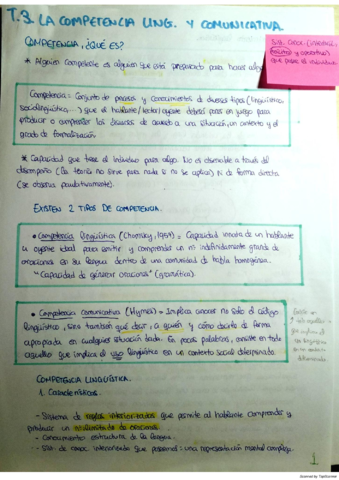 T.3. LA COMPETENCIA LING. Y COMUNICATIVA.
COMPETENCIA, ¿QUÉ ES?
* Alguien competente es alguien que está preparado para hacer algo
Competencia: Conjunto de y conocimientos de diversos tipos (lingüística
sociolingüística, ) que el hablante/lector/oyente deberá poner en juego para
producir o comprender los discursos de acuerdo a una situación, un contexto y el
grado de formalización
* Capacidad que tiene el individuo para algo. No es observable a través del
desempeño (la teoría no sirve para nada si no se aplica) Ni de forma directa
(se observa paulativamente).
EXISTEN 2 TIPOS DE COMPETENCIA.
• Competencia lingüística (Chomsky, ) = Capacidad innata de un hablante
u oyente ideal para emitir y comprender un nº indefinidamente grande de
oraciones en su lengua dentro de una comunidad de habla homogénea.
"Capacidad de generar oraciones" (gramática).
• Competencia comunicativa (Hymes) = Implica conocer no solo el código
lingüístico, sino también qué decir, a quién y cómo decirlo de forma
apropiada en cualquier situación dada. En pocas palabras, consiste en todo
aquello que implica el uso lingüístico en un contexto social determinado.
COMPETENCIA LINGÜÍSTICA.
1. Características.
- Sistema de reglas interiorizadas que permite al hablante comprender y
producir un nº de oraciones.
- Conocimiento estructural de la lengua.
- de conoc. inherente que poseemos: una representación mental compleja.
1
Scanned by TapScanner